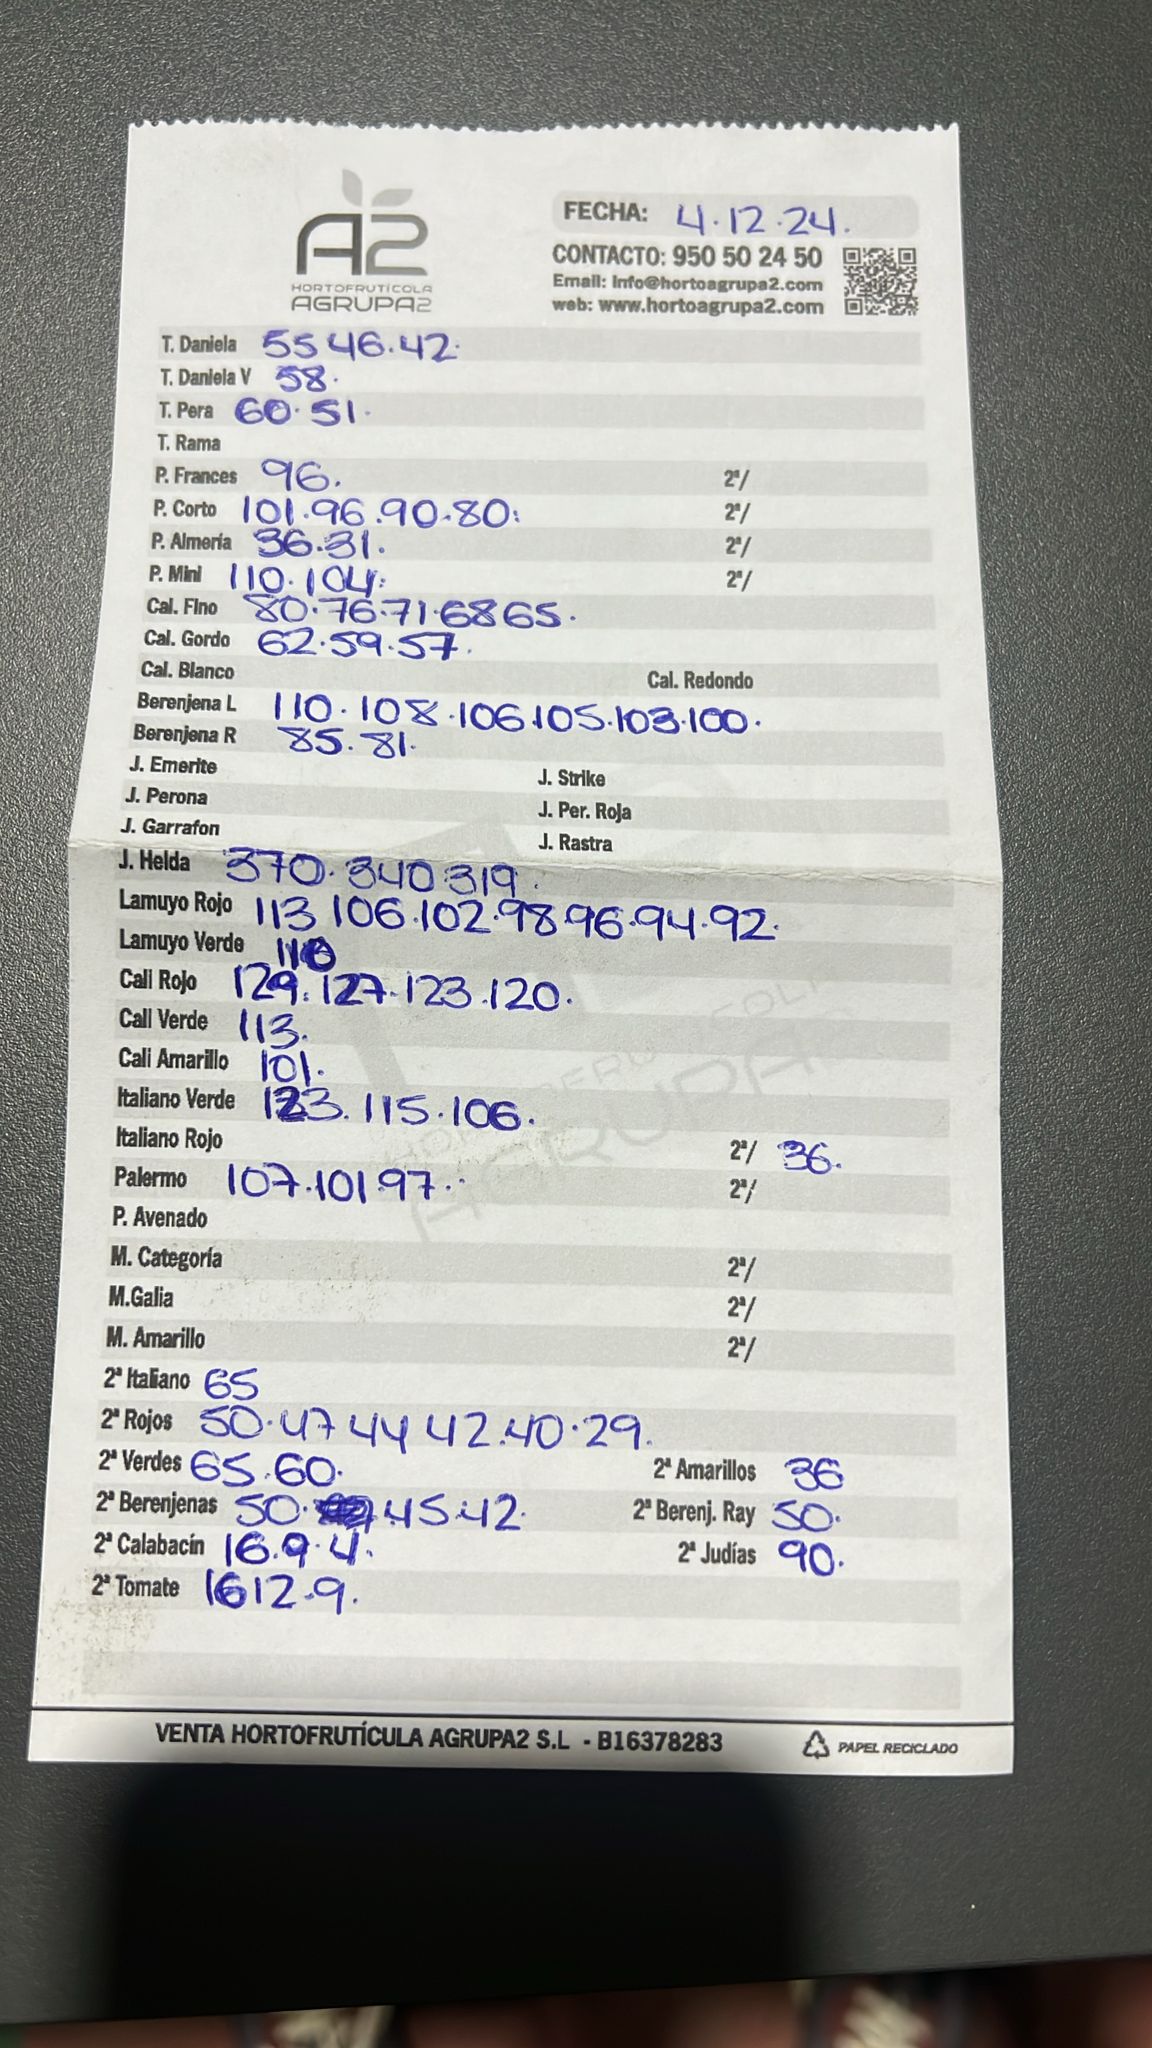 A2
HORTOFRUTÍCOLA
AGRUPA2
FECHA: 4.12.24.
CONTACTO: 950 50 24 50
Email: info@hortoagrupa2.com
web: www.hortoagrupa2.com
T. Daniela 55 46.42.
T. Daniela V 58.
T. Pera 60.51.
T. Rama
P. Frances 96. 2ª/
P. Corto 101.96.90.80. 2ª/
P. Almería 36.31. 2ª/
P. Mini 110.104. 2ª/
Cal. Fino 80.76.71.68 65.
Cal. Gordo 62.59.57.
Cal. Blanco Cal. Redondo
Berenjena L 110.108.106 105.103.100.
Berenjena R 85.81.
J. Emerite J. Strike
J. Perona J. Per. Roja
J. Garrafon J. Rastra
J. Helda 370.340 319.
Lamuyo Rojo 113 106.102.98 96.94.92.
Lamuyo Verde 110
Cali Rojo 129.127.123.120.
Cali Verde 113.
Cali Amarillo 101.
Italiano Verde 123.115.106.
Italiano Rojo 2ª/ 36.
Palermo 107.101 97. 2ª/
P. Avenado
M. Categoría 2ª/
M.Galia 2ª/
M. Amarillo 2ª/
2ª Italiano 65
2ª Rojos 50.47 44 42.40.29.
2ª Verdes 65.60. 2ª Amarillos 36
2ª Berenjenas 50. 45.42. 2ª Berenj. Ray 50.
2ª Calabacín 16.9.4. 2ª Judías 90.
2ª Tomate 16 12.9.
VENTA HORTOFRUTÍCULA AGRUPA2 S.L - B16378283 PAPEL RECICLADO